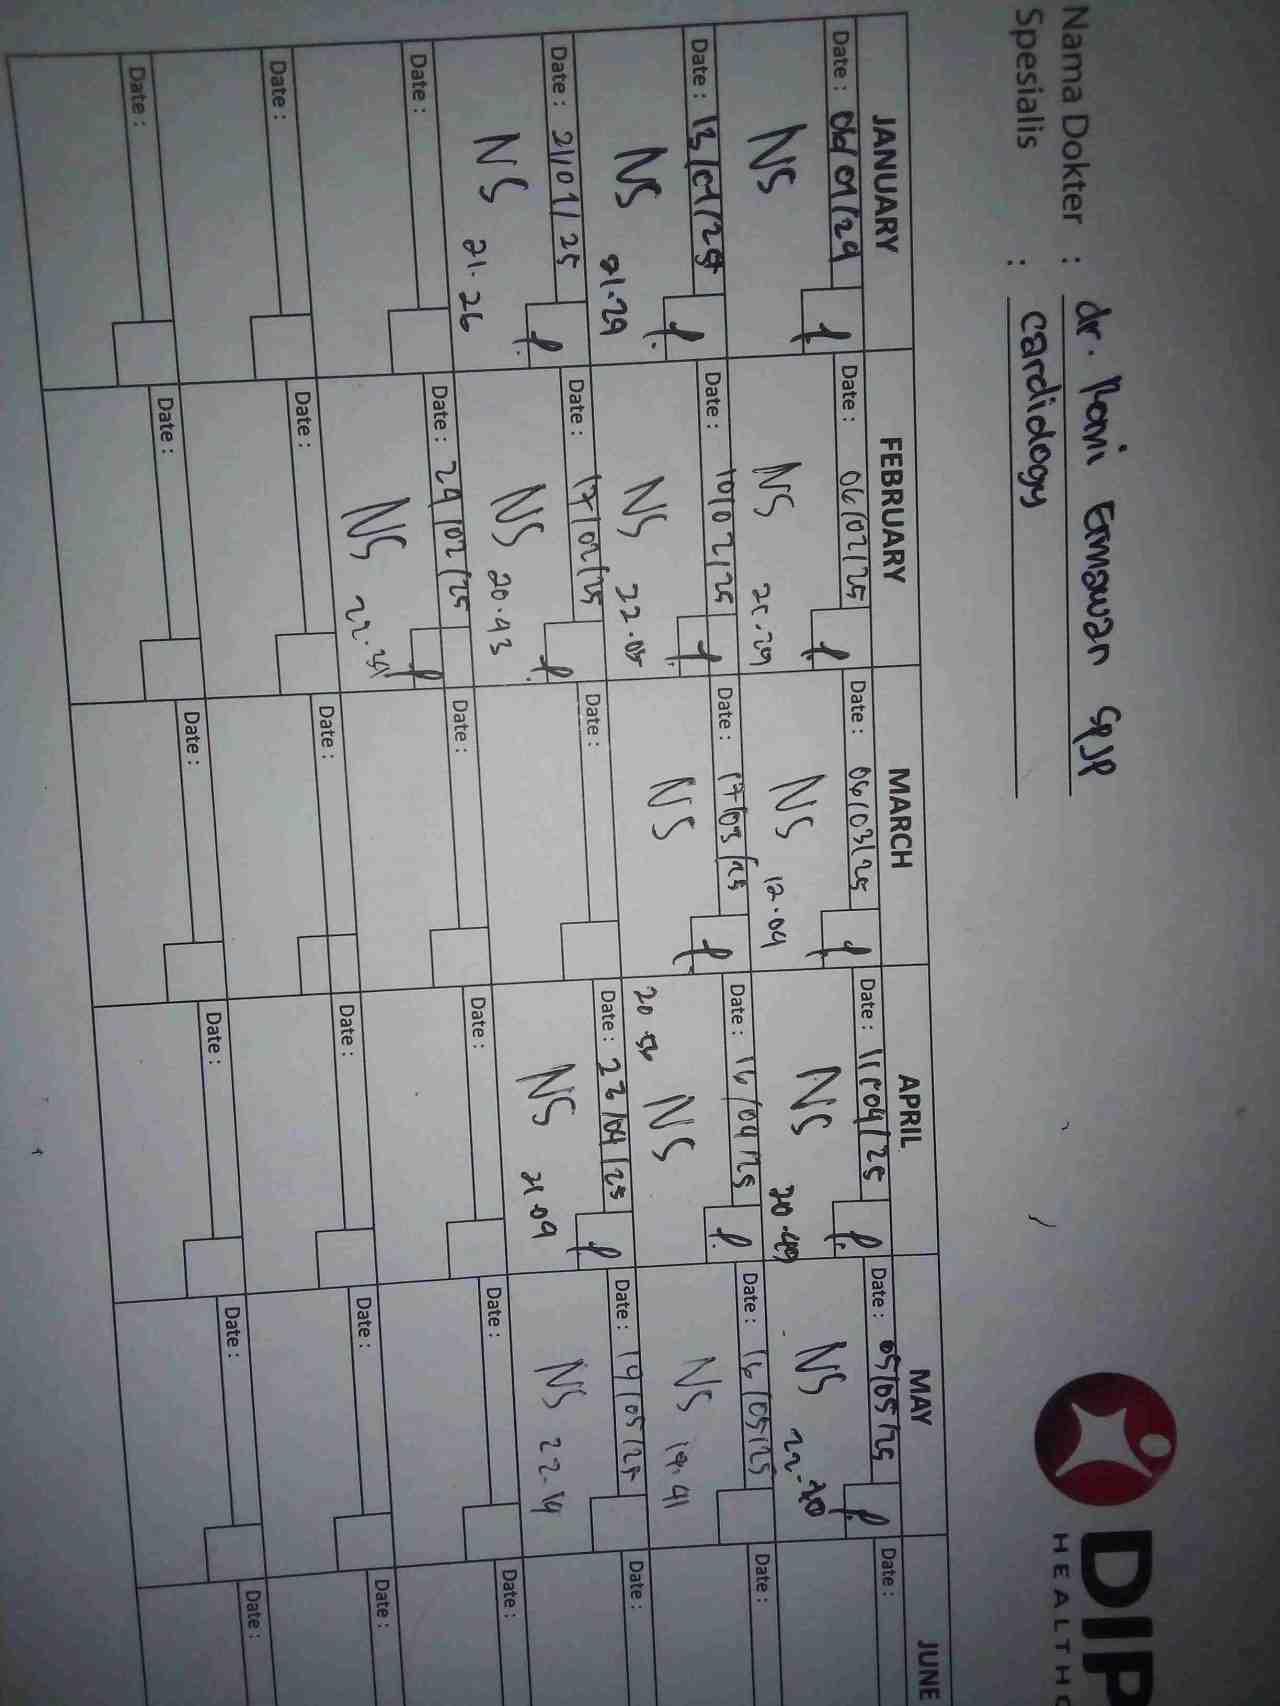 Nama Dokter : dr. Roni Ermawan SPJP
Spesialis : cardiology
DIP
HEALTHC
JANUARY FEBRUARY MARCH APRIL MAY JUNE
Date : 06/01/29 Date : 06/02/25 Date : 06/03/25 Date : 11/04/25 Date : 05/05/25 Date :
NS NS NS 12.04 NS 20.49 NS 22.30
Date : 13/01/25 Date : 10/02/25 Date : 17/03/25 Date : 16/04/25 Date : 16/05/25 Date :
NS 21.29 NS 22.05 NS 20 56 NS NS 19.41
Date : 21/01/25 Date : 17/02/25 Date : Date : 23/04/25 Date : 19/05/25 Date :
NS 21.26 NS 20.43 NS 21.09 NS 22.14
Date : Date : 24/02/25 Date : Date : Date : Date :
NS
Date : Date : Date : Date : Date : Date :
Date : Date : Date : Date : Date : Date :